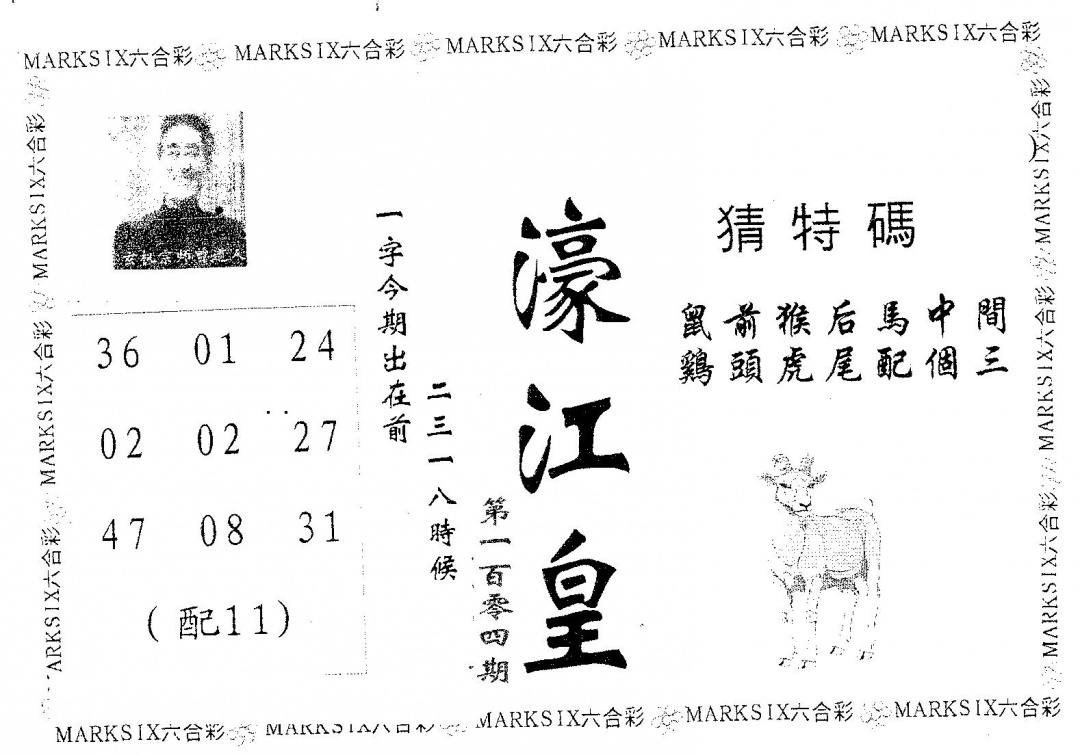 MARKSIX六合彩 MARKSIX六合彩 MARKSIX六合彩 MARKSIX六合彩 MARKSIX六合彩
MARKSIX六合彩 MARKSIX六合彩 ARKSIX六合彩
36 01 24
02 02 27
47 08 31
(配11)
一字今期出在前
二三一八時候
第一百零四期
濠江皇
猜特碼
鼠前猴后馬中間
鷄頭虎尾配個三
MARKSIX六合彩 MARKSIX六合彩 MARKSIX六合彩
MARKSIX六合彩 MARKSIX六合彩 MARKSIX六合彩 MARKSIX六合彩